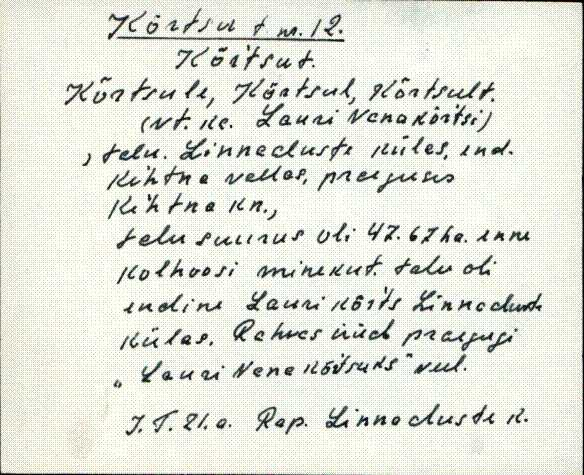 Kõrtsu t nr. 12.
Kõrtsut.
Kõrtsule, Kõrtsul, Kõrtsult.
(vt. ka. Lauri Vanakõrtsi)
, talu. Linnaaluste külas, end.
Kehtna vallas, praeguses
Kehtna kn.,
talu suurus oli 47.67 ha. enne
kolhoosi minekut. talu oli
endine Lauri kõrts Linnaaluste
külas. Rahvas üüab praegugi
„Lauri Vana Kõrtsuks" veel.
J. T. 21.a. Rap. Linnaaluste k.